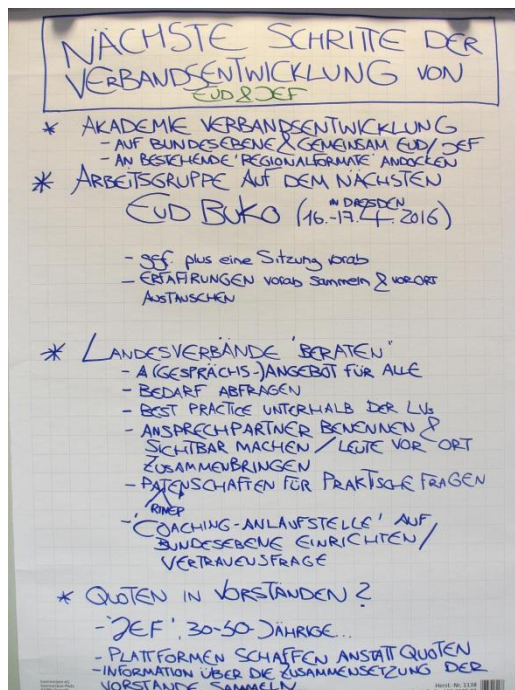 NÄCHSTE SCHRITTE DER
VERBANDSENTWICKLUNG VON
EUD & JEF
* AKADEMIE VERBANDSENTWICKLUNG
- AUF BUNDESEBENE & GEMEINSAM EUD/JEF
- AN BESTEHENDE 'REGIONALFORMATE' ANDOCKEN
* ARBEITSGRUPPE AUF DEM NÄCHSTEN
IN DRESDEN
EUD BUKO (16.-17.4. 2016)
- ggf. plus eine Sitzung vorab
- ERFAHRUNGEN vorab sammeln & VOR ORT
AUSTAUSCHEN
* LANDESVERBÄNDE 'BERATEN'
- A (GESPRÄCHS-)ANGEBOT FÜR ALLE
- BEDARF ABFRAGEN
- BEST PRACTICE UNTERHALB DER LVs
- ANSPRECHPARTNER BENENNEN &
SICHTBAR MACHEN / LEUTE VOR ORT
ZUSAMMENBRINGEN
- PATENSCHAFTEN FÜR PRAKTISCHE FRAGEN
- 'COACHING-ANLAUFSTELLE' AUF
BUNDESEBENE EINRICHTEN/
VERTRAUENSFRAGE
* QUOTEN IN VORSTÄNDEN?
- 'JEF', 30-50-JÄHRIGE...
- PLATTFORMEN SCHAFFEN ANSTATT QUOTEN
- INFORMATION ÜBER DIE ZUSAMMENSETZUNG DER
VORSTÄNDE SAMMELN